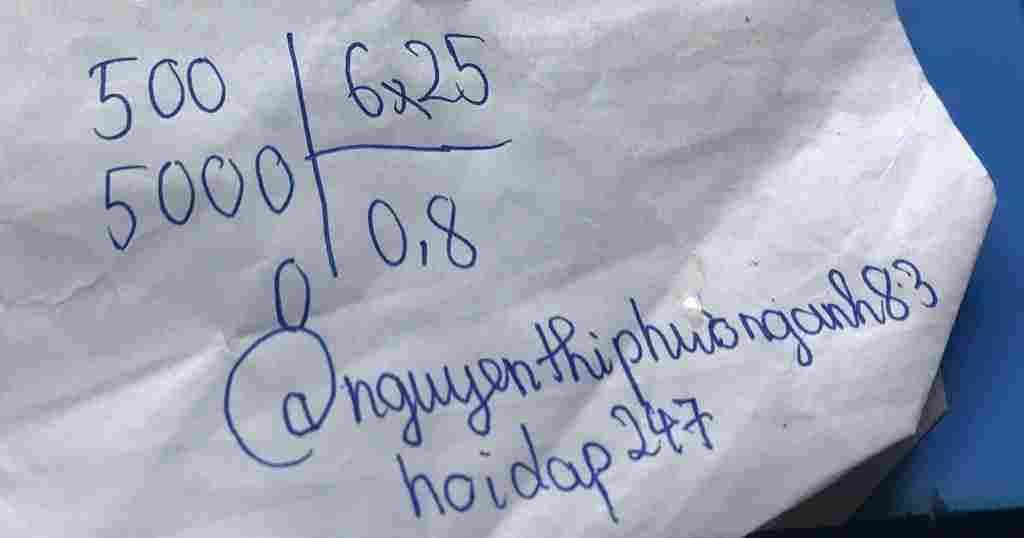 500 | 6x25
5000 | 0,8
0
@nguyenthiphuonganh83
hoidap247